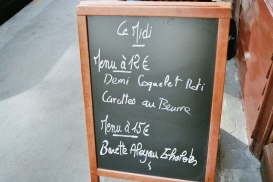 Ce Midi
Menu à 12€
Demi Coquelet Roti
Carottes au Beurre
Menu à 15€
Bavette Aloyau Echalotes